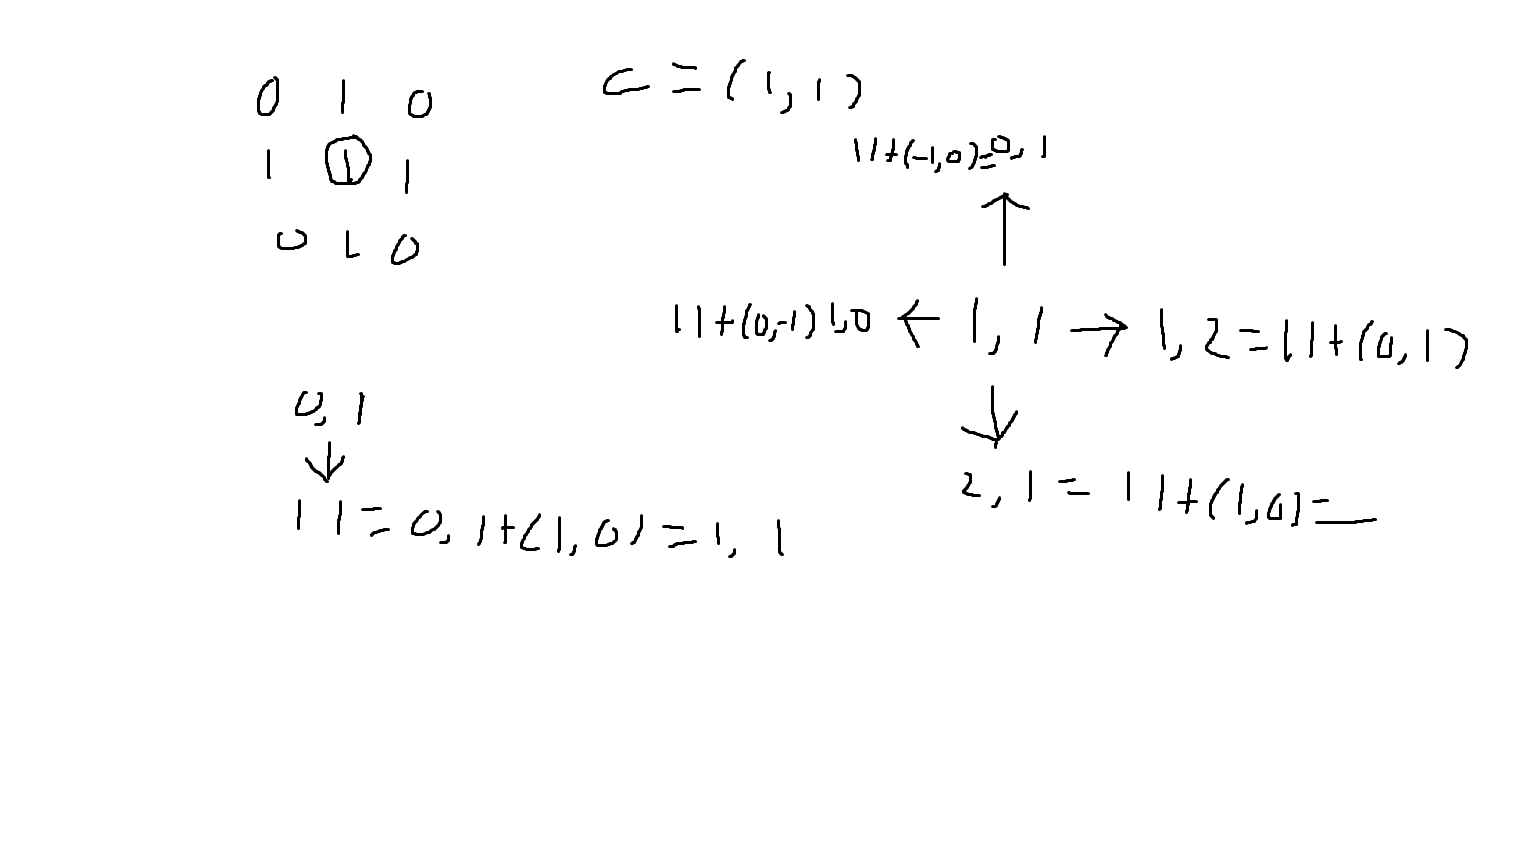 0 1 0
1 1 1
0 1 0
c = (1, 1)
11+(-1,0)=0, 1
↑
11+(0,-1) 1,0 ← 1, 1 → 1, 2 = 11+(0, 1)
↓
2, 1 = 11+(1,0)=
0, 1
↓
1 1 = 0, 1+(1, 0) = 1, 1